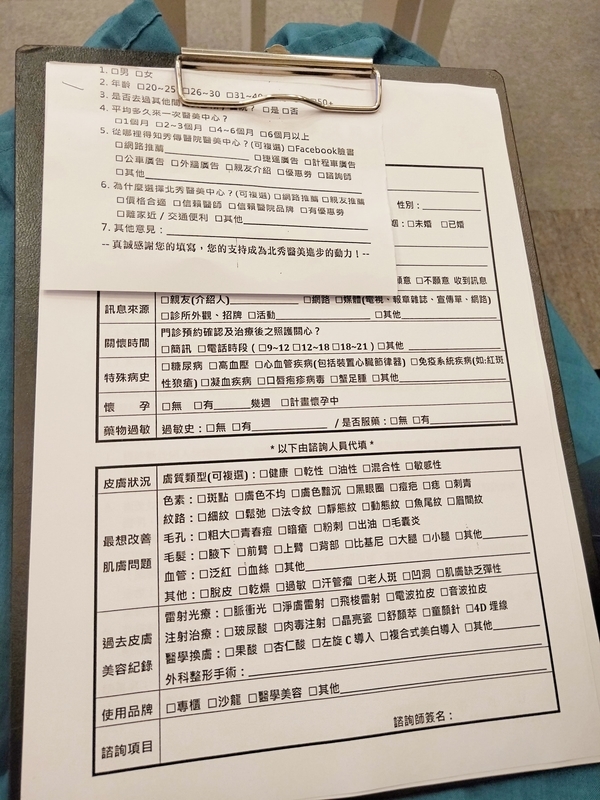 1. □男 □女
2. 年齡 □20~25 □26~30 □31~40 □50+
3. 是否去過其他間 ？ □是 □否
4. 平均多久來一次醫美中心？
□1個月 □2~3個月 □4~6個月 □6個月以上
5. 從哪裡得知秀傳醫院醫美中心？(可複選) □Facebook臉書
□網路推薦 □捷運廣告 □計程車廣告
□公車廣告 □外牆廣告 □親友介紹 □優惠劵 □諮詢師
□其他
6. 為什麼選擇北秀醫美中心？(可複選) □網路推薦 □親友推薦
□價格合適 □信賴醫師 □信賴醫院品牌 □有優惠劵
□離家近 / 交通便利 □其他
7. 其他意見：
-- 真誠感謝您的填寫，您的支持成為北秀醫美進步的動力！--
性別：
姻：□未婚 □已婚
願意 □不願意 收到訊息
訊息來源 □親友(介紹人) □網路 □媒體(電視、報章雜誌、宣傳單、網路)
□診所外觀、招牌 □活動 □其他
關懷時間 門診預約確認及治療後之照護關心？
□簡訊 □電話時段 ( □9~12 □12~18 □18~21 ) □其他
特殊病史 □糖尿病 □高血壓 □心血管疾病(包括裝置心臟節律器) □免疫系統疾病(如:紅斑
性狼瘡) □凝血疾病 □口唇疱疹病毒 □蟹足腫 □其他
懷 孕 □無 □有 幾週 □計畫懷孕中
藥物過敏 過敏史：□無 □有 / 是否服藥：□無 □有
* 以下由諮詢人員代填 *
皮膚狀況 膚質類型(可複選)：□健康 □乾性 □油性 □混合性 □敏感性
最想改善 肌膚問題 色素：□斑點 □膚色不均 □膚色黯沉 □黑眼圈 □痘疤 □痣 □刺青
紋路：□細紋 □鬆弛 □法令紋 □靜態紋 □動態紋 □魚尾紋 □眉間紋
毛孔：□粗大 □青春痘 □暗瘡 □粉刺 □出油 □毛囊炎
毛髮：□腋下 □前臂 □上臂 □背部 □比基尼 □大腿 □小腿 □其他
血管：□泛紅 □血絲 □其他
其他：□脫皮 □乾燥 □過敏 □汗管瘤 □老人斑 □凹洞 □肌膚缺乏彈性
過去皮膚 美容紀錄 雷射光療：□脈衝光 □淨膚雷射 □飛梭雷射 □電波拉皮 □音波拉皮
注射治療：□玻尿酸 □肉毒注射 □晶亮瓷 □舒顏萃 □童顏針 □4D 埋線
醫學換膚：□果酸 □杏仁酸 □左旋 C 導入 □複合式美白導入 □其他
外科整形手術：
使用品牌 □專櫃 □沙龍 □醫學美容 □其他
諮詢項目
諮詢師簽名：